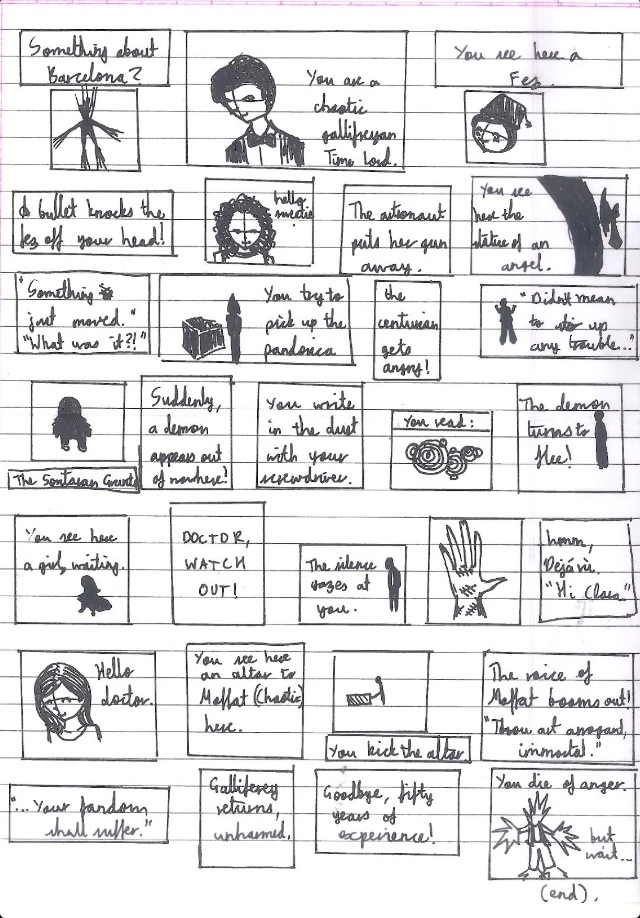 Something about
Barcelona?
You are a
chaotic
gallifreyan
Time Lord.
You see here a
Fez.
A bullet knocks the
fez off your head!
hello
sweetie.
The astronaut
puts her gun
away.
You see
here the
statue of an
angel.
"Something
just moved."
"What was it?!"
You try to
pick up the
pandorica
the
centurian
gets
angry!
"Didn't mean
to stir up
any trouble..."
The Sontaran Grunts
Suddenly,
a demon
appears out
of nowhere!
You write
in the dust
with your
screwdriver.
You read:
The demon
turns to
flee!
You see here
a girl, waiting.
DOCTOR,
WATCH
OUT!
The silence
gazes at
you.
hmm,
Déjà vu.
"Hi Clara"
Hello
doctor.
You see here
an altar to
Moffat (Chaotic)
here.
You kick the altar
The voice of
Moffat booms out!
"Thou art arrogant,
immortal."
"...Your fandom
shall suffer."
Gallifrey
returns,
unharmed.
Goodbye, fifty
years of
experience!
You die of anger.
but
wait...
(end).